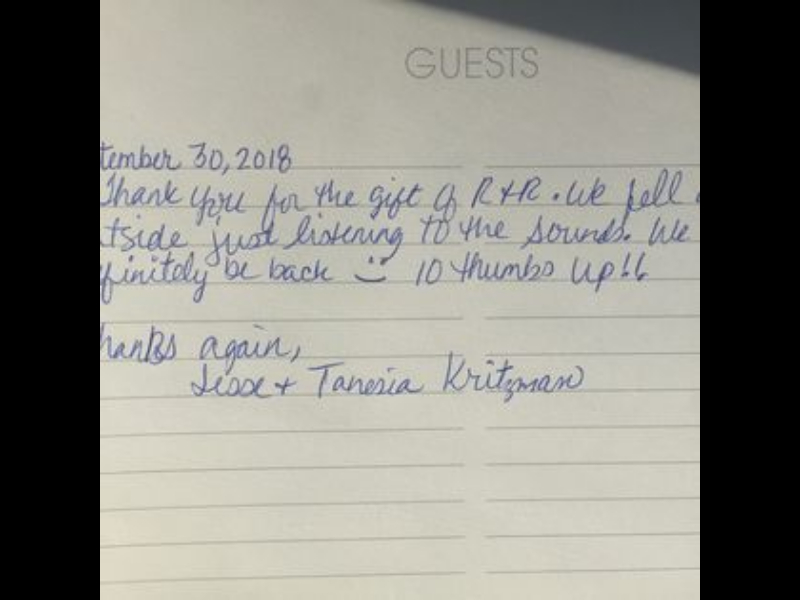 GUESTS
tember 30, 2018
Thank you for the gift of R+R. We fell
tside just listening to the sounds. We
finitely be back :) 10 thumbs up!!
hanks again,
Jesse + Tanesia Kritzman